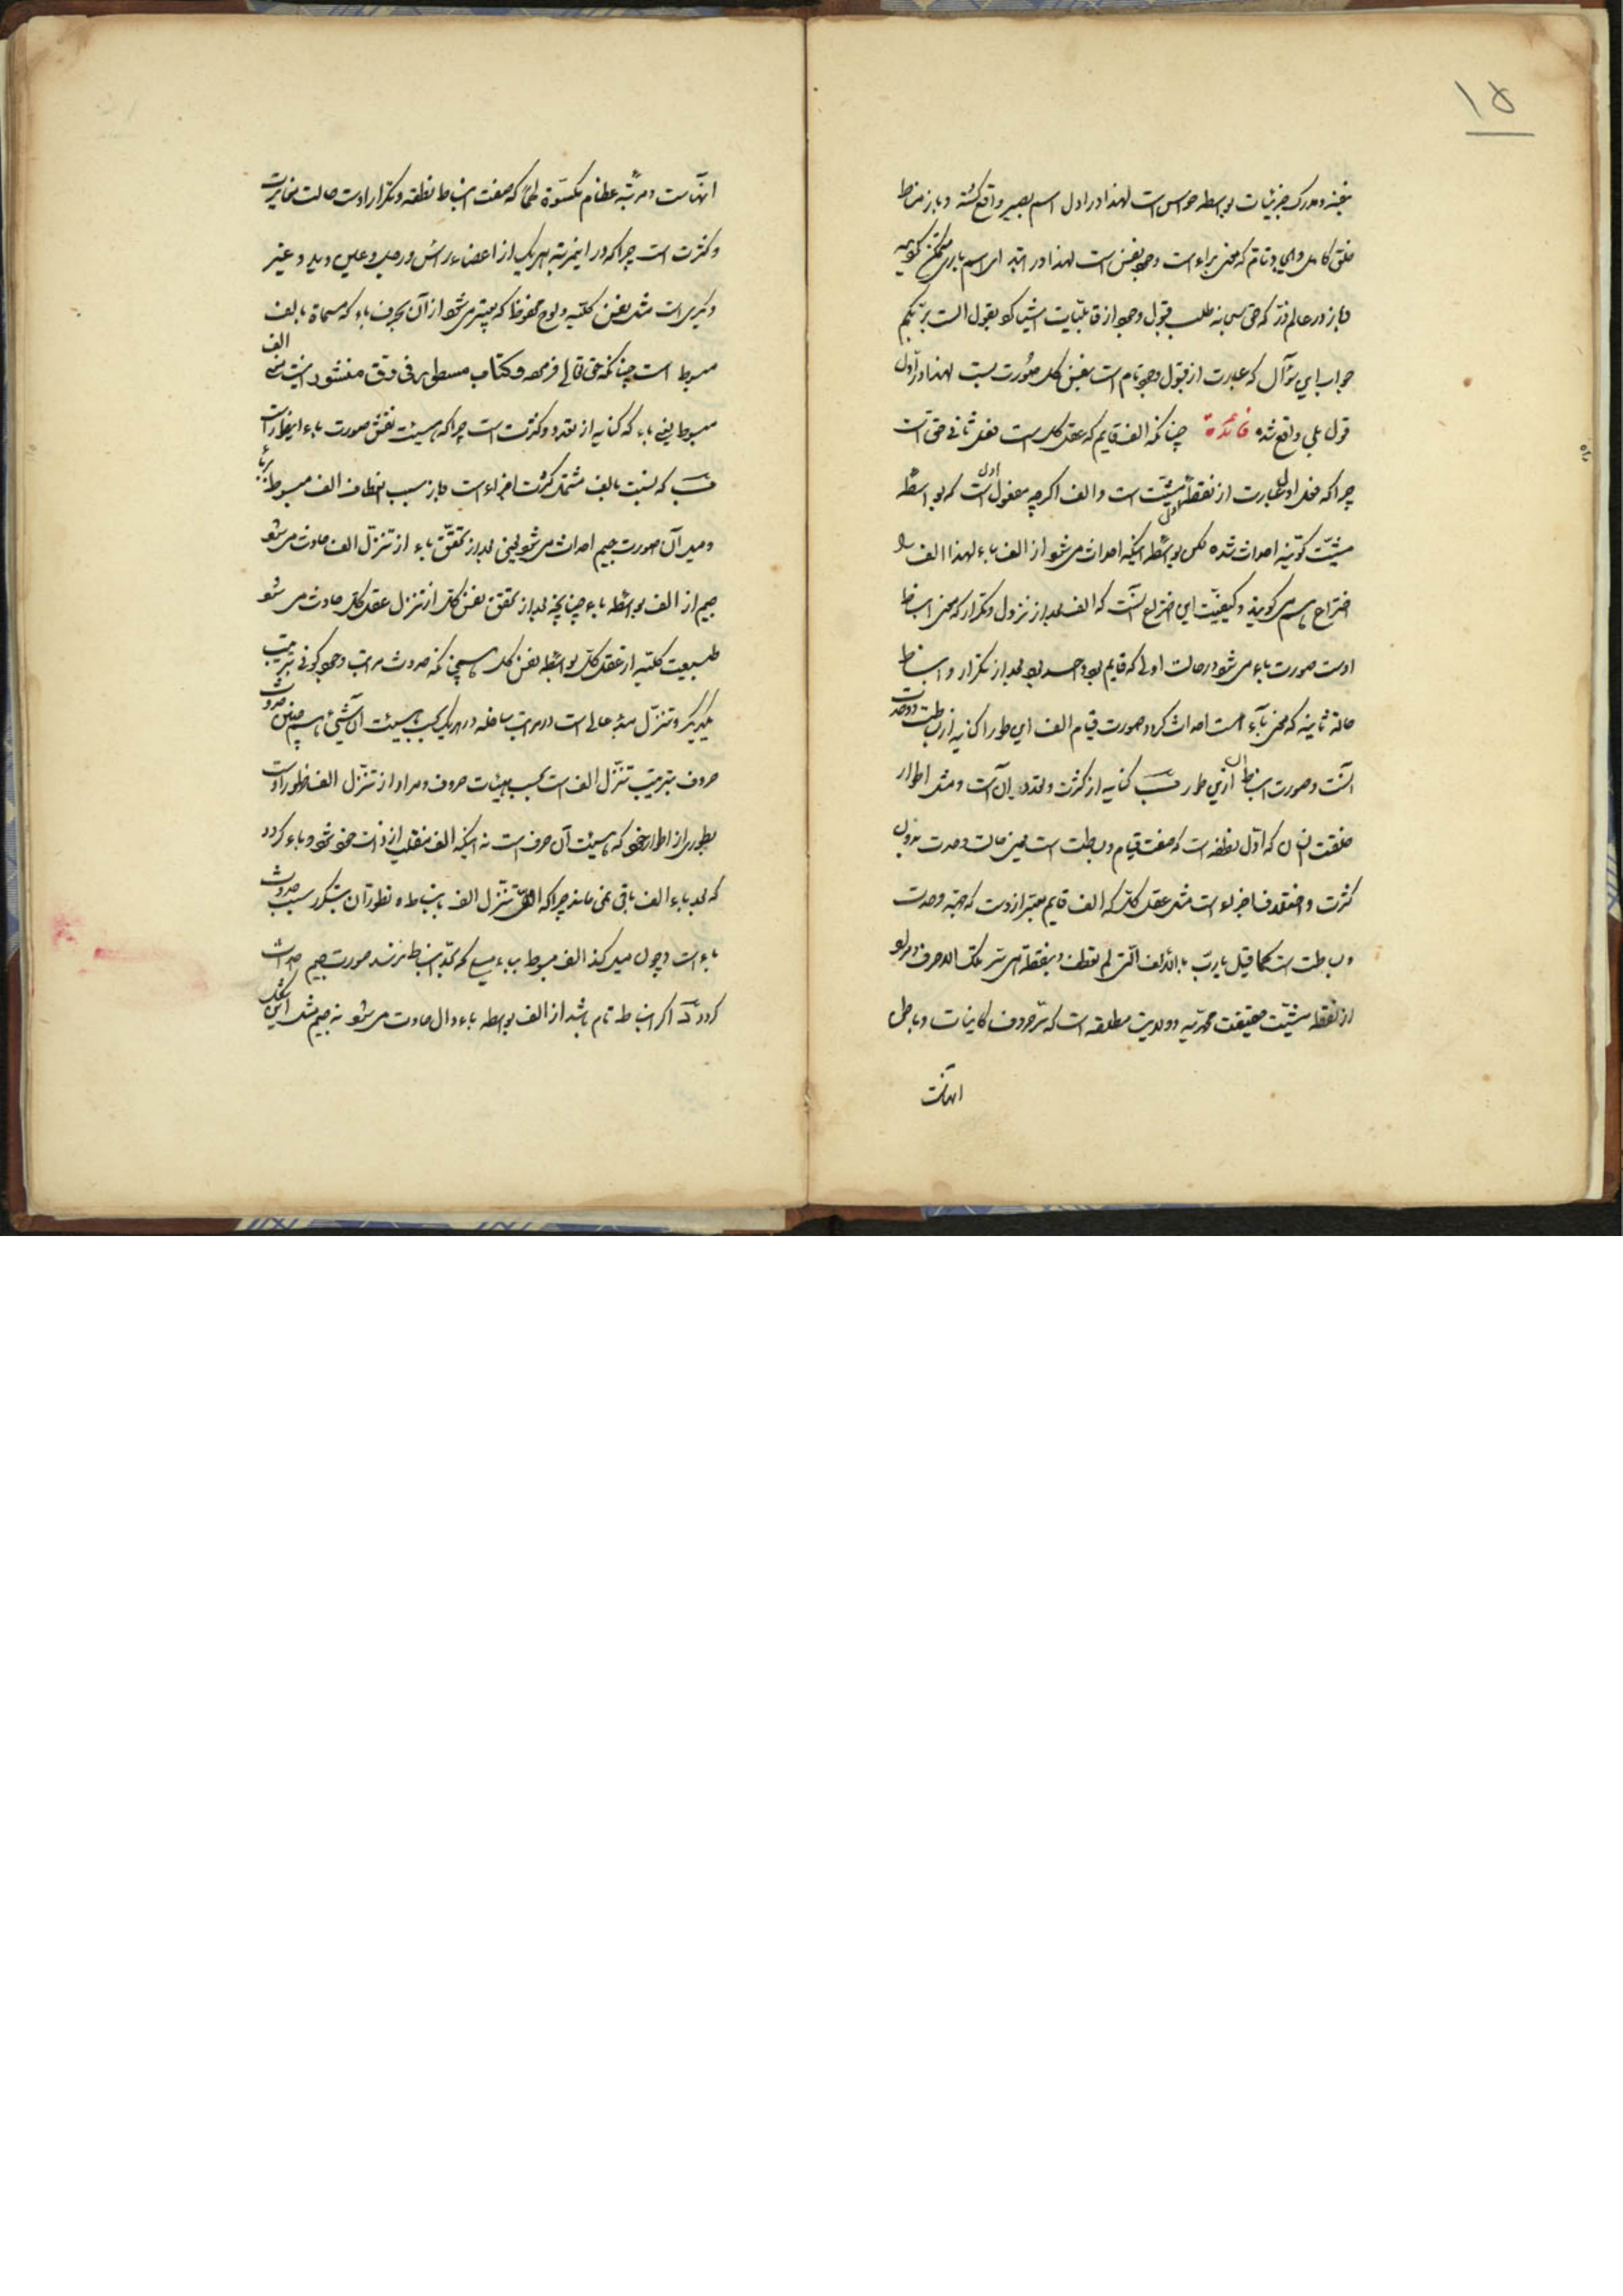 ۱۵
و مدرک جزئیات بواسطه حواس است لهذا در اول اسم بصیر واقع گشته و باز مناط
خلق کامل و ایجاد تام که معنی براء است وجود نفس است لهذا در ابتدای اسم باری
و باز در عالم ذر که حق سبحانه طلب قبول وجود از قابلیات اشیا کرد بقول الست بربکم
جواب این سؤال که عبارت از قبول وجود تام است بنفس کل صورت بست لهذا در اول
قول بلی واقع شده فائدة چنانکه الف قایم که عقل کل است فعل ثانی حق است
چرا که فعل اول عبارت از نقطه مشیت است و الف اگرچه مفعول اول است که بواسطه
مشیت کونیه احداث شده لکن بواسطه اینکه احداث می شود از الف باء لهذا الف را
اختراع هم می گویند و کیفیت این اختراع آنست که الف بعد از نزول و تکرار که معنی انبساط
اوست صورت باء می شود در حالت اولی که قایم بود واحد بود بعد از تکرار و انبساط
حالة ثانیه که معنی باء است احداث کرد و صورت قیام الف این طور ا کنایه از بساطت و وحدت
آنست و صورت انبساط آن از این طور ب کنایه از کثرت و تعدد آن است و مثل اطوار
خلقت انسان که اول نطفه است که صفت قیام و بساطت است یعنی حالت وحدت بدون
کثرت و اختلاف اجزاء است مثل عقل کلی که الف قایم معبر از اوست که جهة وحدت
و بساطت است کما قیل یا رب بالالف التی لم تعطف و بنقطة هی سر تلک الاحرف و مراد
از نقطه مشیت حقیقت محمدیه و ولایت مطلقه است که سر حروف کاینات و باطن
آنهاست
آنهاست و مرتبه عظام مکسوة لحماً که صفت انبساط نطفه و تکرار اوست حالت مغایرت
و کثرت است چرا که در این مرتبه هر یک از اعضاء راس و رجل و عین و ید و غیر
دیگری است مثل نفس کلیه و لوح محفوظ که معبر می شود از آن بحرف باء که مسماة بالف
مبسوط است چنانکه حق تعالی فرموده و کتاب مسطور فی رق منشور الف
مبسوط یعنی باء که کنایه از تعدد و کثرت است چرا که هیئت نقش صورت باء اینطور است
ب که نسبت بالف مشتمل کثرت اجزاء است و باز سبب انعطاف الف مبسوط
و میل آن صورت جیم احداث می شود یعنی بعد از تحقق باء از تنزل الف حادث می شود
جیم از الف بواسطه باء چنانچه بعد از تحقق نفس کل از تنزل عقل کل حادث می شود
طبیعت کلیه از عقل کل بواسطه نفس کل همچنانکه حدوث مراتب وجود کونی بترتیب
یکدیگر و تنزل مبدء عالی است در مراتب سافله در هر یک بحسب هیئت آن شیئ همچنین حدوث
حروف بترتیب تنزل الف است بحسب هیئات حروف و مراد از تنزل الف ظهور اوست
بطوری از اطوار خود که هیئت آن حرف است نه اینکه الف منقلب از ذات خود شود و باء گردد
که بعد باء الف باقی نمی ماند چرا که تنزل الف بانبساط و تطور آن بتکرر سبب حدوث
باء است و چون میل کند الف مبسوط بباء میلی که بحد انبساط نرسد صورت جیم حداث
گردد اگر انبساط تام باشد از الف بواسطه باء دال حادث می شود نه جیم مثل این شکل